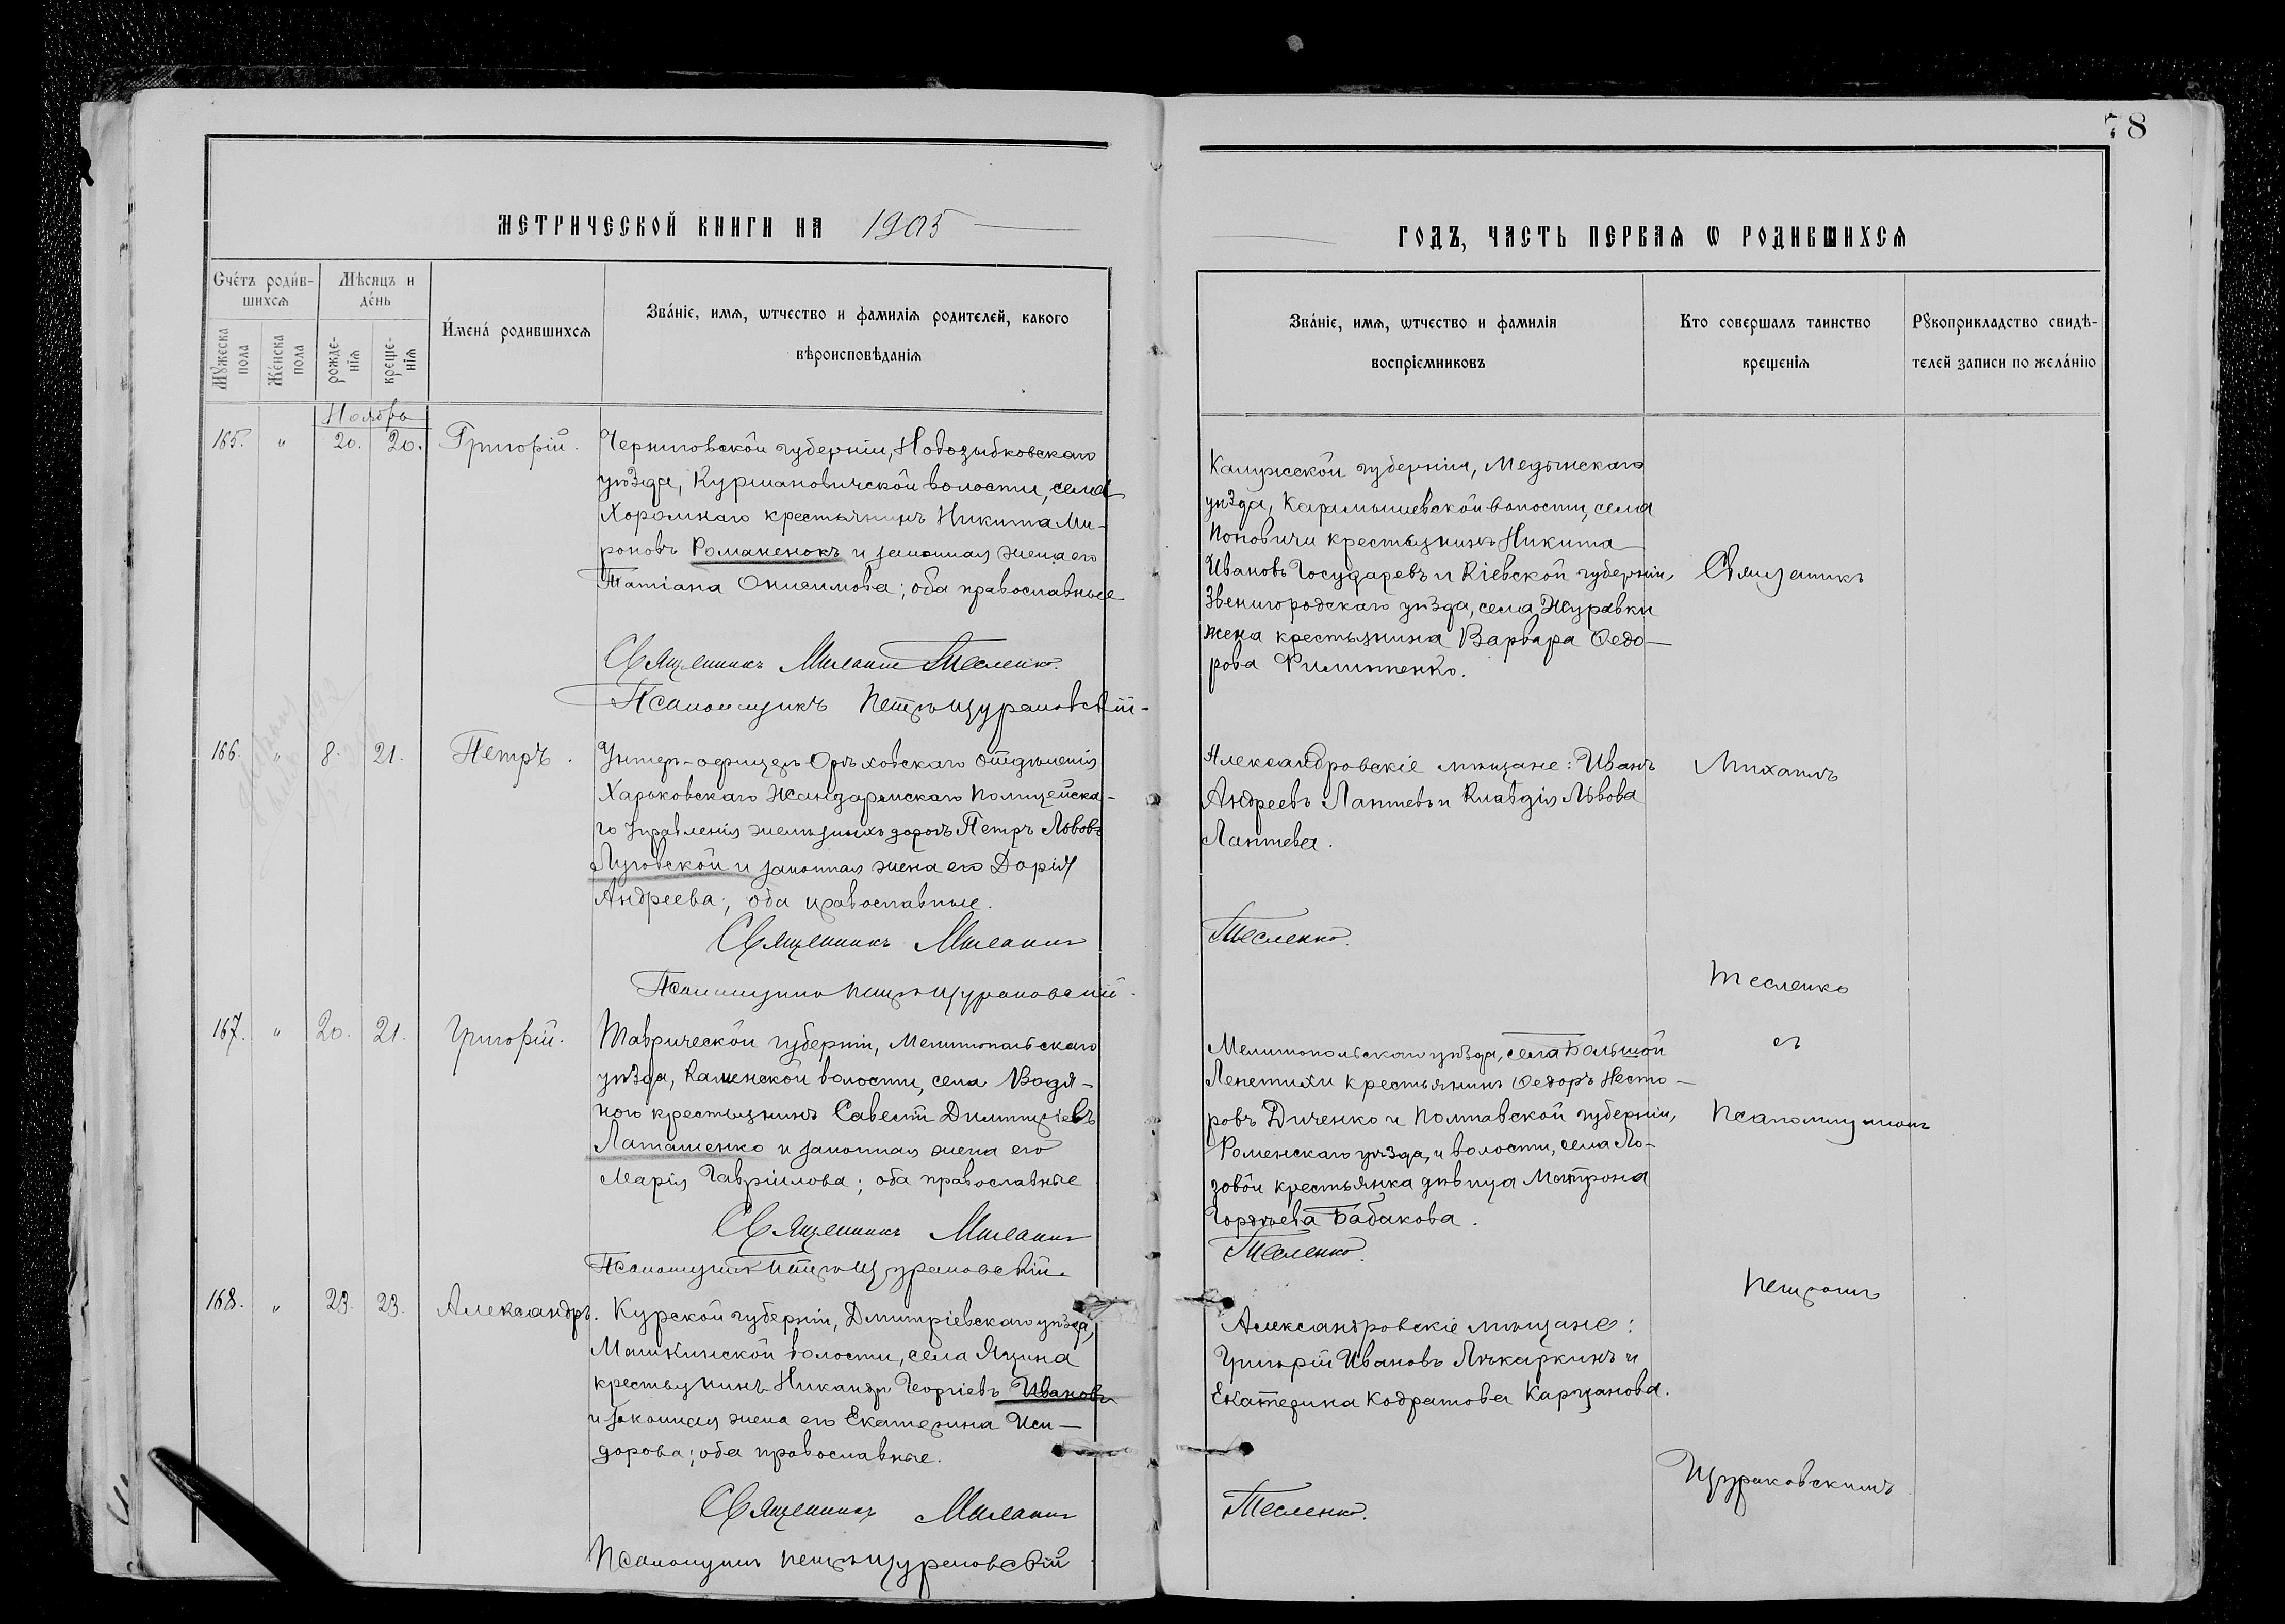 78
МЕТРИЧЕСКОЙ КНИГИ НА 1905
ГОДЪ, ЧАСТЬ ПЕРВАѦ Ѡ РОДИВШИХСѦ
Счéтъ роди́в-
шихсѧ
Мѣсяцъ и
дéнь
Мꙋ́жеска
пола
Жéнска
пола
рожде-
нїѧ
креще-
нїѧ
И́мена́ родившихсѧ
Зва́нїе, имѧ, ѿтчество и фамилїѧ родителей, какого
вѣроисповѣданїѧ
Зва́нїе, имѧ, ѿтчество и фамилїѧ
воспрїемниковъ
Кто совершалъ таинство
крещенїѧ
Рꙋкоприкладство свидѣ-
телей записи по жела́нїю
Ноябрь
165. " 20. 20. Григорій.
Черниговской губерніи, Новозыбковскаго
уѣзда, Курмановичской волости, села
Хоромнаго крестьянинъ Никита Ми-
роновъ Романенокъ и законная жена его
Татіана Онисимова; оба православные
Священникъ Михаилъ Тесленко.
Псаломщикъ Петръ Щураковскій
Калужской губерніи, Медынскаго
уѣзда, Карамышевской волости, села
Поповичи крестьянинъ Никита
Ивановъ Государевъ и Кіевской губерніи,
Звенигородскаго уѣзда, села Журавки
жена крестьянина Варвара Ѳедо-
рова Филипенко.
Священникъ
166. " 8. 21. Петръ.
Унтер-офицеръ Орѣховскаго отдѣленія
Харьковскаго Жандармскаго Полицейска-
го Управленія желѣзныхъ дорогъ Петръ Львовъ
Луговской и законная жена его Дарія
Андреева; оба православные.
Священникъ Михаилъ
Псаломщикъ Петръ Щураковскій
Александровскіе мѣщане: Иванъ
Андреевъ Лаптевъ и Клавдія Львова
Лаптева.
Тесленко.
Михаилъ
Тесленко
167. " 20. 21. Григорій.
Таврической губерніи, Мелитопольскаго
уѣзда, Каменской волости, села Водя-
ного крестьянинъ Савелій Дмитріевъ
Латашенко и законная жена его
Марія Гавріилова; оба православные
Священникъ Михаилъ
Псаломщикъ Петръ Щураковскій
Мелитопольскаго уѣзда, села Большой
Лепетихи крестьянинъ Ѳедоръ Несто-
ровъ Диченко и Полтавской губерніи,
Роменскаго уѣзда, и волости, села Ло-
зовой крестьянка дѣвица Матрона
Гордѣева Бабакова.
Тесленко.
съ
Псаломщикомъ
Петромъ
168. " 23. 23. Александръ.
Курской губерніи, Дмитріевскаго уѣзда,
Машкинской волости, села Яцина
крестьянинъ Никандръ Георгіевъ Ивановъ
и законная жена его Екатерина Иси-
дорова; оба православные.
Священникъ Михаилъ
Псаломщикъ Петръ Щураковскій
Александровскіе мѣщане:
Григорій Ивановъ Лѣкаркинъ и
Екатерина Кодратова Карцанова.
Тесленко.
Щураковскимъ